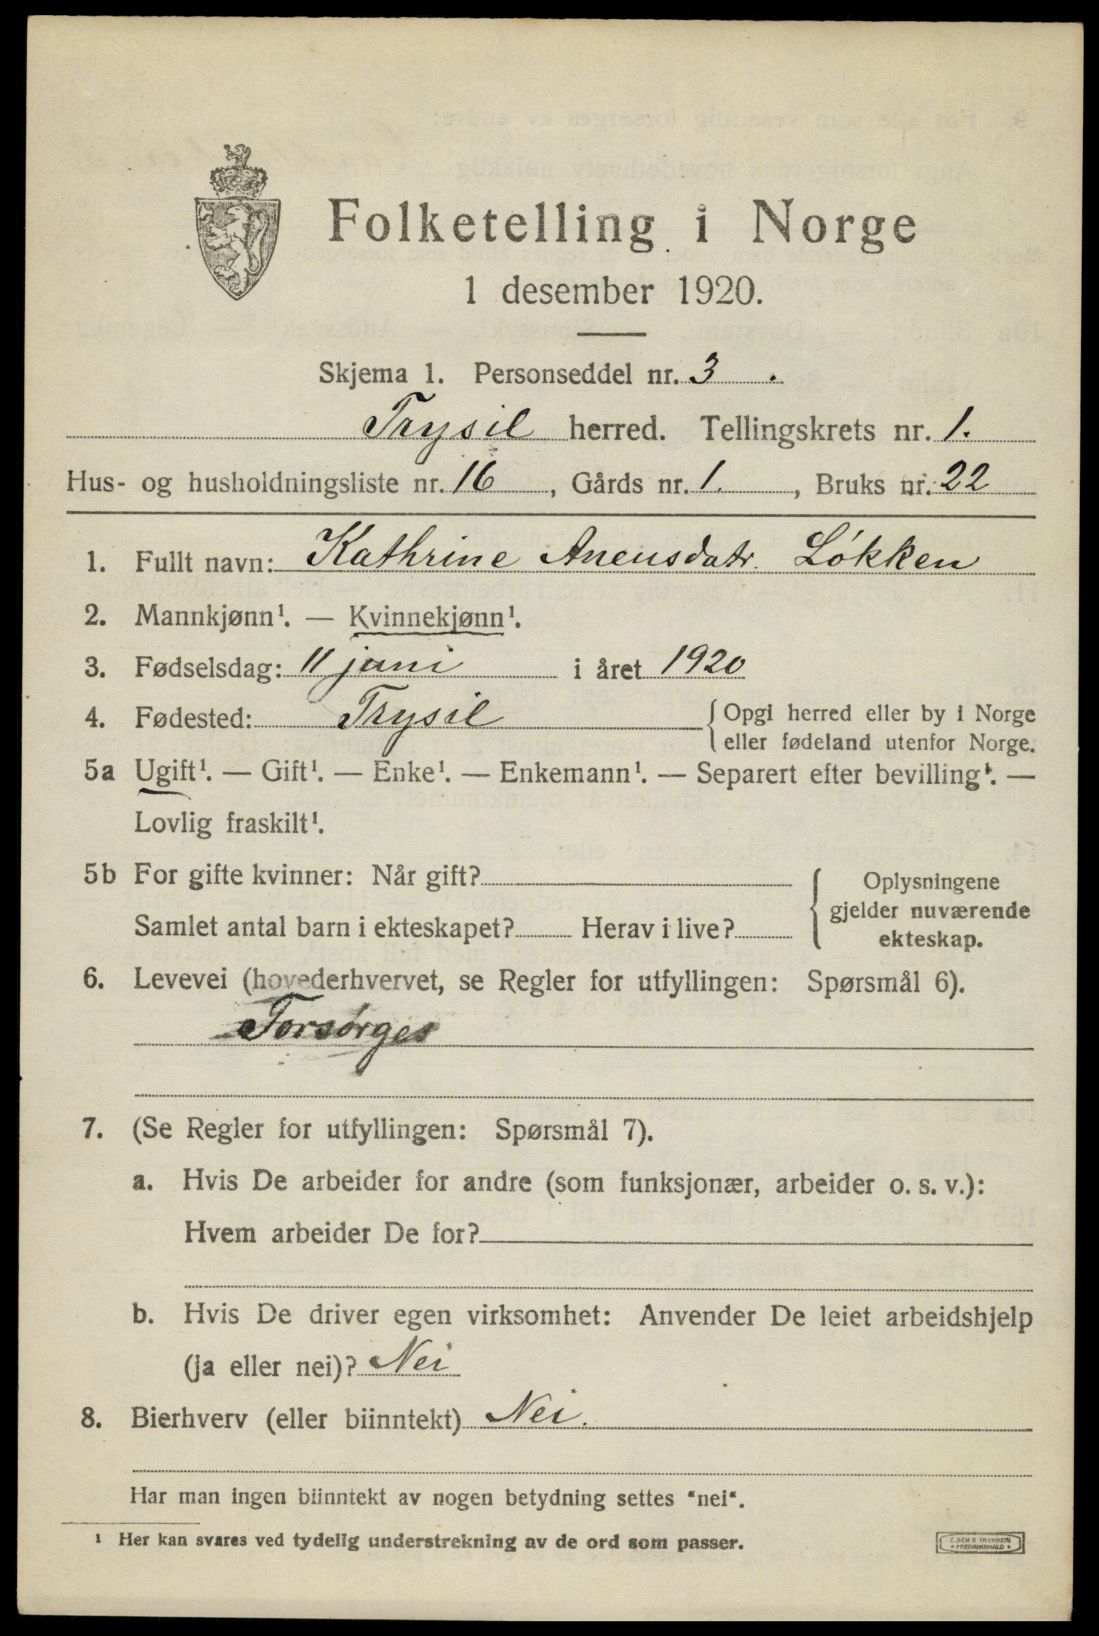 Folketelling i Norge
1 desember 1920.
Skjema 1. Personseddel nr. 3.
Trysil herred. Tellingskrets nr. 1.
Hus- og husholdningsliste nr. 16, Gårds nr. 1., Bruks nr. 22
1. Fullt navn: Kathrine Anensdatr. Løkken
2. Mannkjønn¹. — Kvinnekjønn¹.
3. Fødselsdag: 11 juni i året 1920
4. Fødested: Trysil {Opgi herred eller by i Norge
eller fødeland utenfor Norge.
5a Ugift¹. — Gift¹. — Enke¹. — Enkemann¹. — Separert efter bevilling¹. —
Lovlig fraskilt¹.
5b For gifte kvinner: Når gift? { Oplysningene
gjelder nuværende
Samlet antal barn i ekteskapet? Herav i live?
ekteskap.
6. Levevei (hovederhvervet, se Regler for utfyllingen: Spørsmål 6).
Forsørges
7. (Se Regler for utfyllingen: Spørsmål 7).
a. Hvis De arbeider for andre (som funksjonær, arbeider o. s. v.):
Hvem arbeider De for?
b. Hvis De driver egen virksomhet: Anvender De leiet arbeidshjelp
(ja eller nei)? Nei
8. Bierhverv (eller biinntekt) Nei.
Har man ingen biinntekt av nogen betydning settes "nei".
¹ Her kan svares ved tydelig understrekning av de ord som passer.